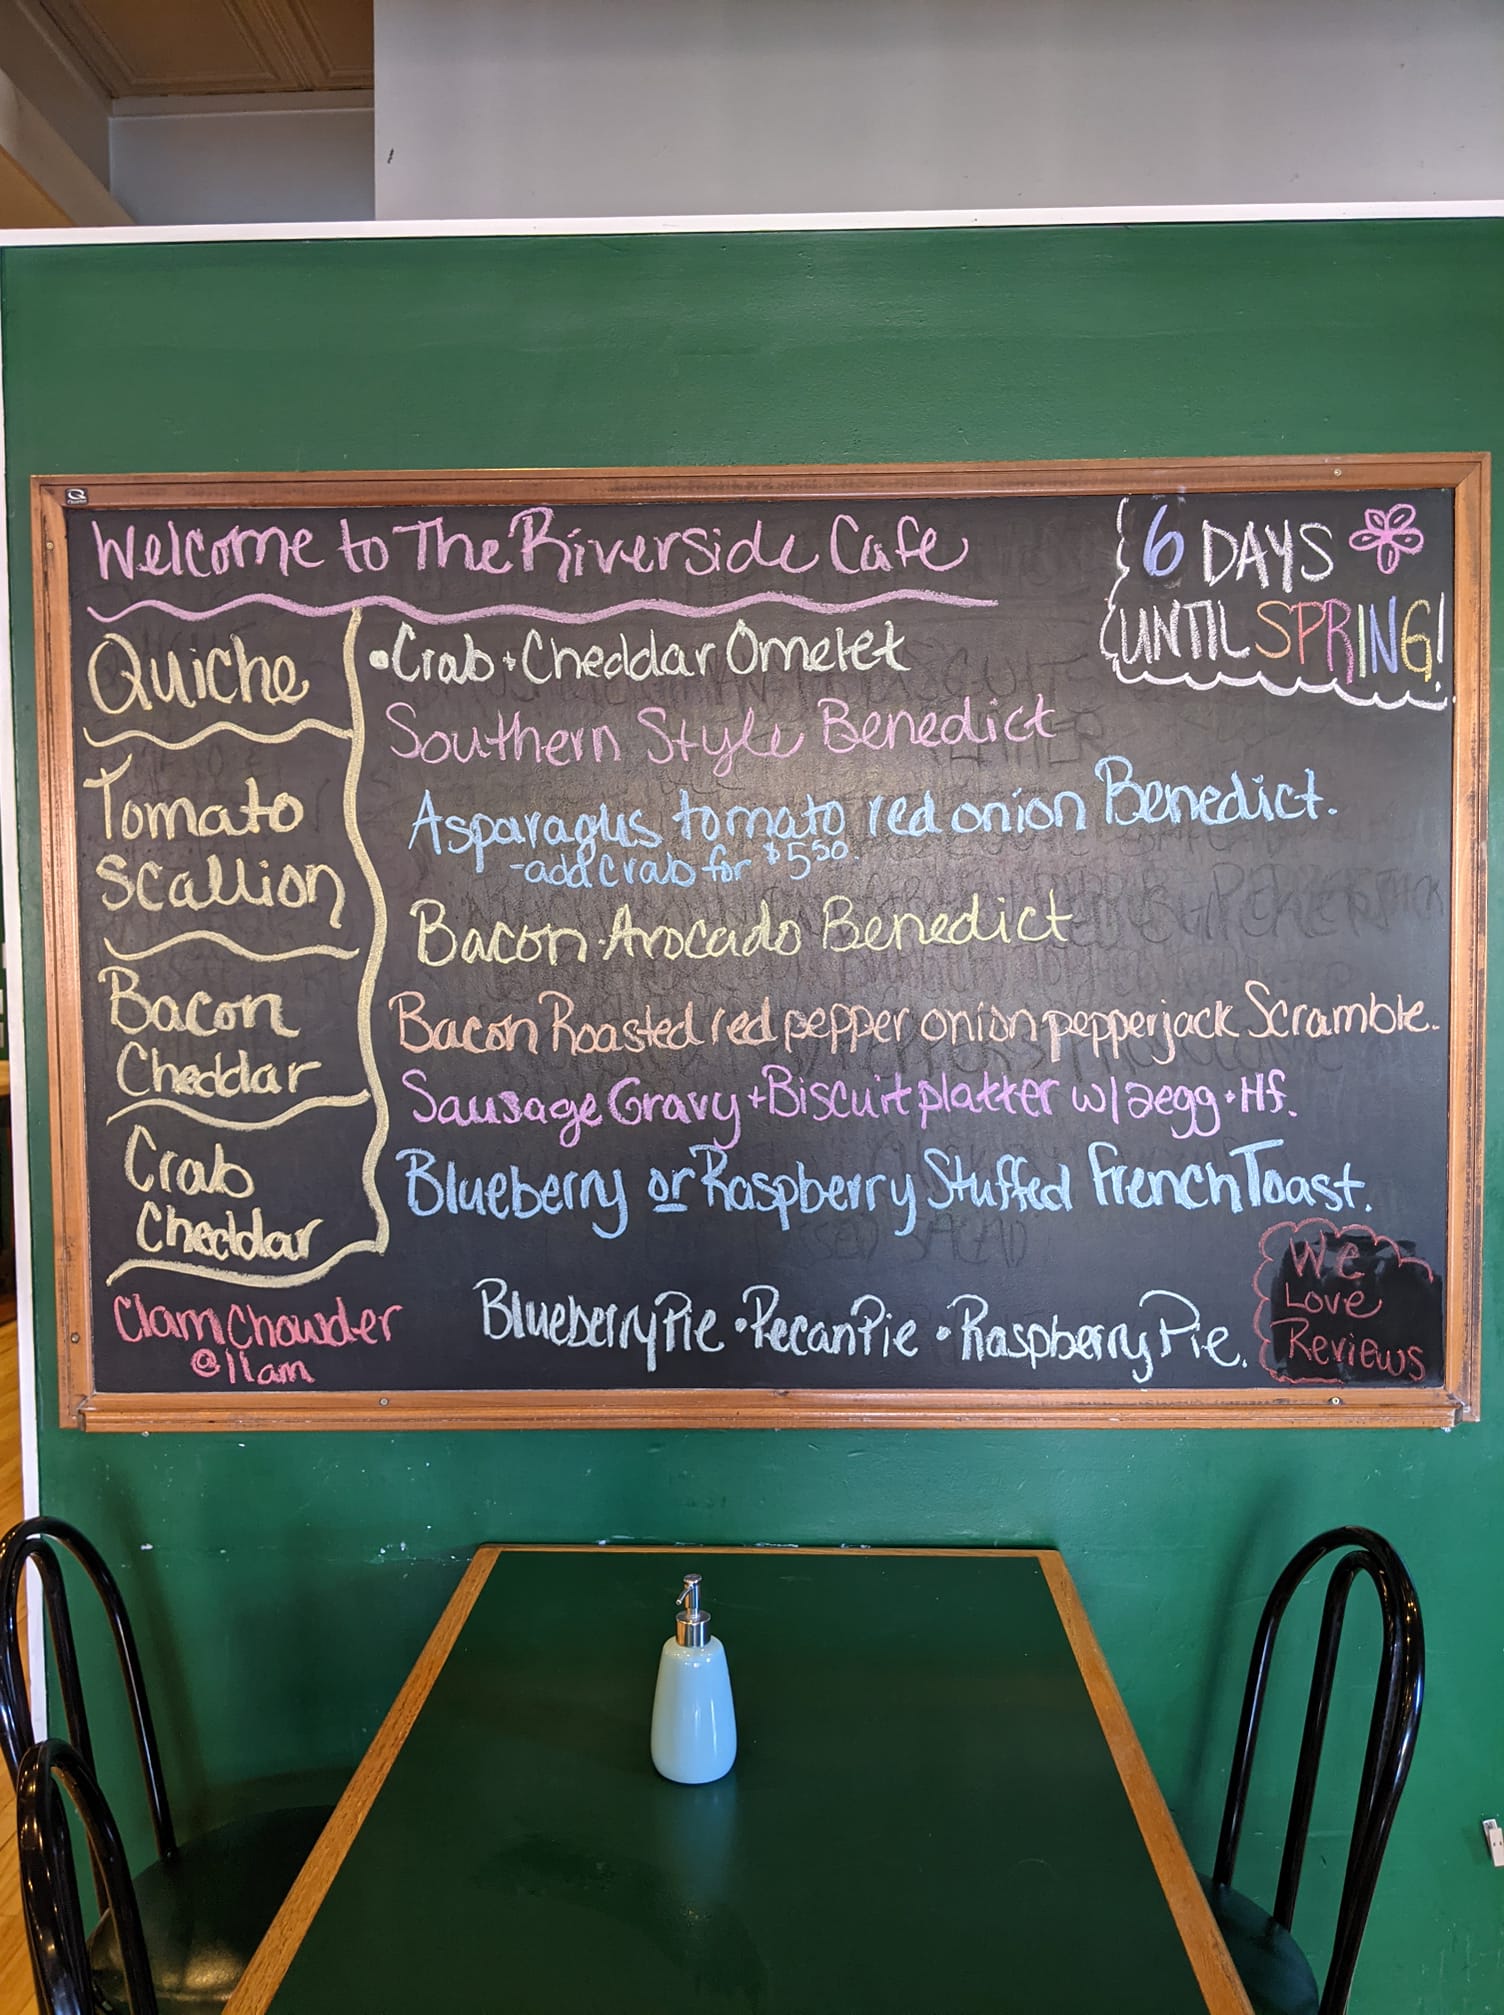 Welcome to The Riverside Cafe
6 DAYS
UNTIL SPRING!
Quiche
Tomato
Scallion
Bacon
Cheddar
Crab
Cheddar
Clam Chowder
@11am
• Crab + Cheddar Omelet
Southern Style Benedict
Asparagus tomato red onion Benedict.
-add crab for $5.50.
Bacon Avocado Benedict
Bacon Roasted red pepper onion pepperjack Scramble.
Sausage Gravy + Biscuit platter w/2egg + Hf.
Blueberry or Raspberry Stuffed French Toast.
Blueberry Pie • Pecan Pie • Raspberry Pie.
We
Love
Reviews